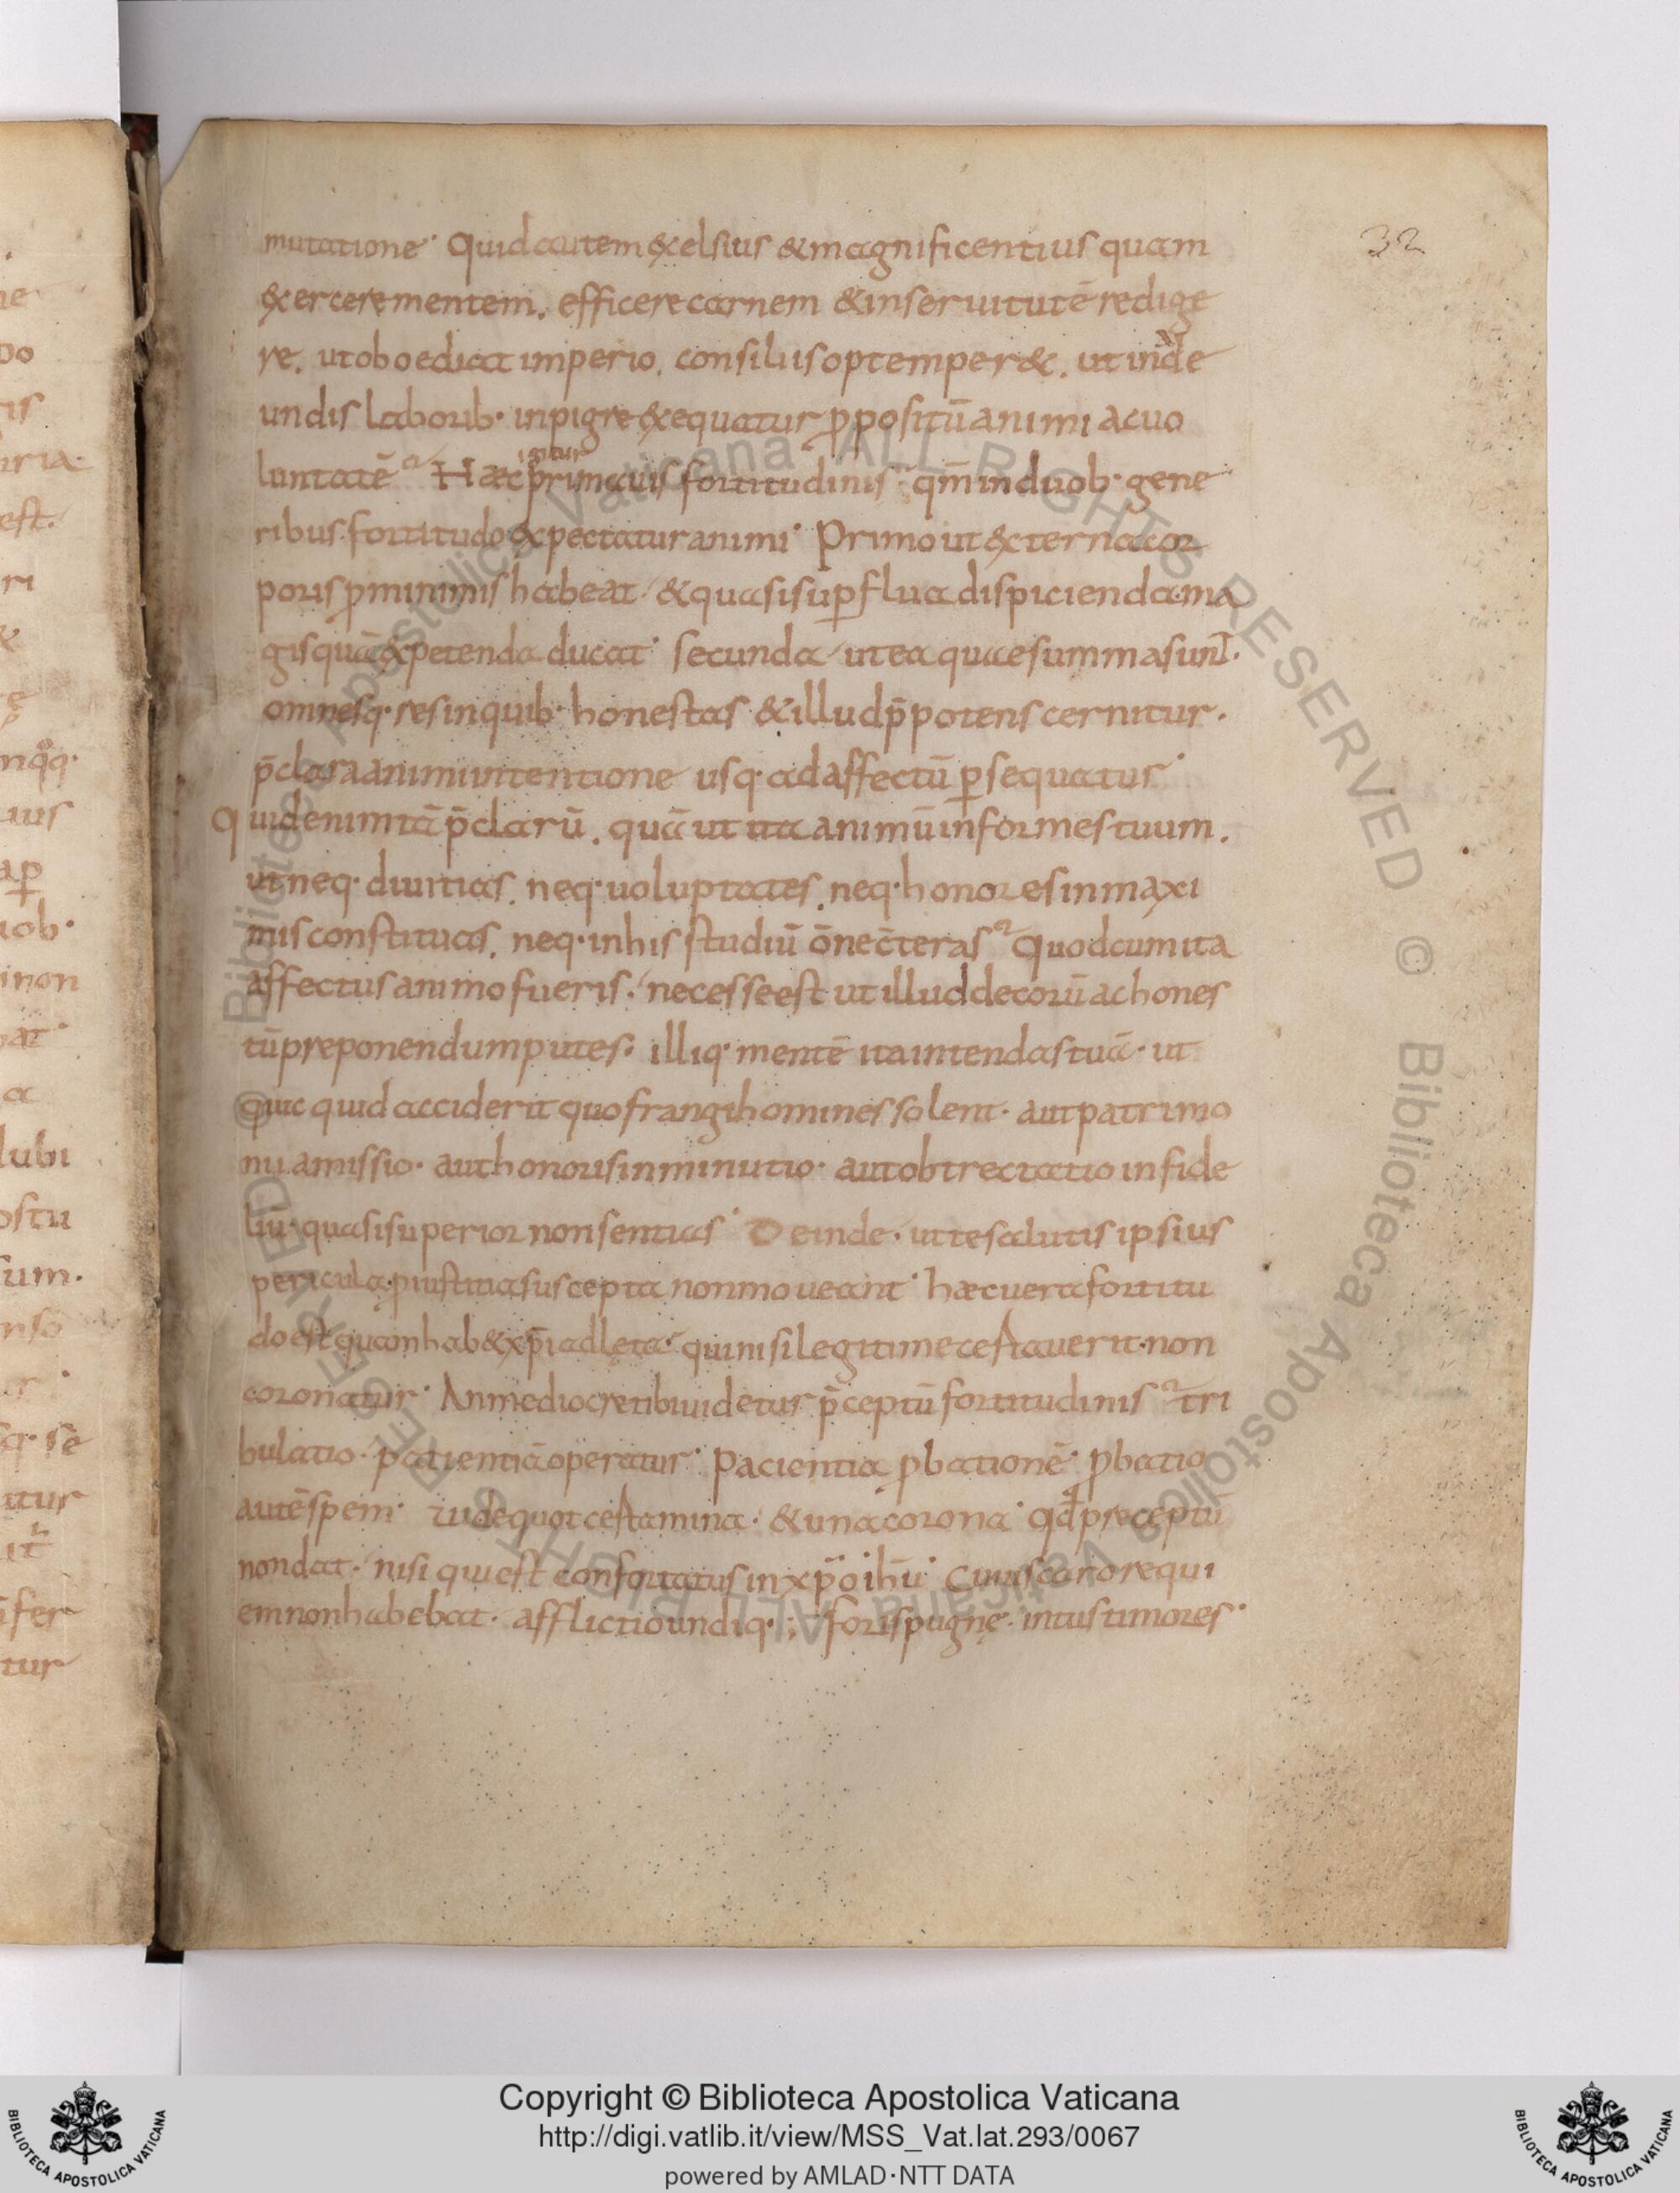 32
mutatione· Quid autem &celsius & magnificentius quam
&cercere mentem. efficere carnem & inseruitutē redige
re. ut oboediat imperio. consiliis optemper&. ut inde
undis laborib· inpigre &cequatur ꝓpositū animi acuo
luntatē Haec igitur prima uis fortitudinis· qm̄ induob· gene
ribus fortitudo &cpectatur animi· Primo ut &cterna cor
poris ꝓ minimis habeat· & quasi suꝑflua dispicienda ma
gis quā &cpetenda ducat· secunda ut ea quae summa sunt·
omnesq· res inquib· honestas & illud p̄potens cernitur·
p̄clara animi intentione usq· ad affectū ꝑsequatur·
Quid enim tā p̄clarū. quā ut ita animū informes tuum.
ut neq· diuitias. neq· uoluptates. neq· honores inmaxi
mis constituas. neq· in his studiū ōne c̄teras Quod cum ita
affectus animo fueris· necesse est ut illud decorū ac hones
tū preponendum putes· illiq· mentē ita intendas tuā· ut
quicquid acciderit quo frangi homines solent· aut patrimo
nii amissio· aut honoris inminutio· aut obtrectatio infide
liū· quasi superior non sentias· Deinde· ut te salutis ipsius
pericula ꝓ iustitia suscepta non moueant· haec uera fortitu
do est qua onhab& xp̄i adleta· qui nisi legitime certauerit· non
coronatur· An mediocre tibi uidetur p̄ceptū fortitudinis tri
bulatio· patientiā operatur· Pacientia ꝓbationē· ꝓbatio
autē spem· Uide quot certamina· & una corona· qd̄ preceptū
non dat· nisi qui est confortatus in xp̄o ihū· Cuius caro requi
em non habebat· afflictio undiq·; foris pugnę· intus timores·
ne
po
ris
iria·
est.
ri
&
nqq·
uius
aꝑ
uob·
inon
at·
a
lubii
ostu
sum·
nso
q· sē
itur
īfer
tur
© Biblioteca Apostolica Vaticana ALL RIGHTS RESERVED © Biblioteca Apostolica Vaticana ALL RIGHTS RESERVED
BIBLIOTECA APOSTOLICA VATICANA
Copyright © Biblioteca Apostolica Vaticana
http://digi.vatlib.it/view/MSS_Vat.lat.293/0067
powered by AMLAD·NTT DATA
BIBLIOTECA APOSTOLICA VATICANA